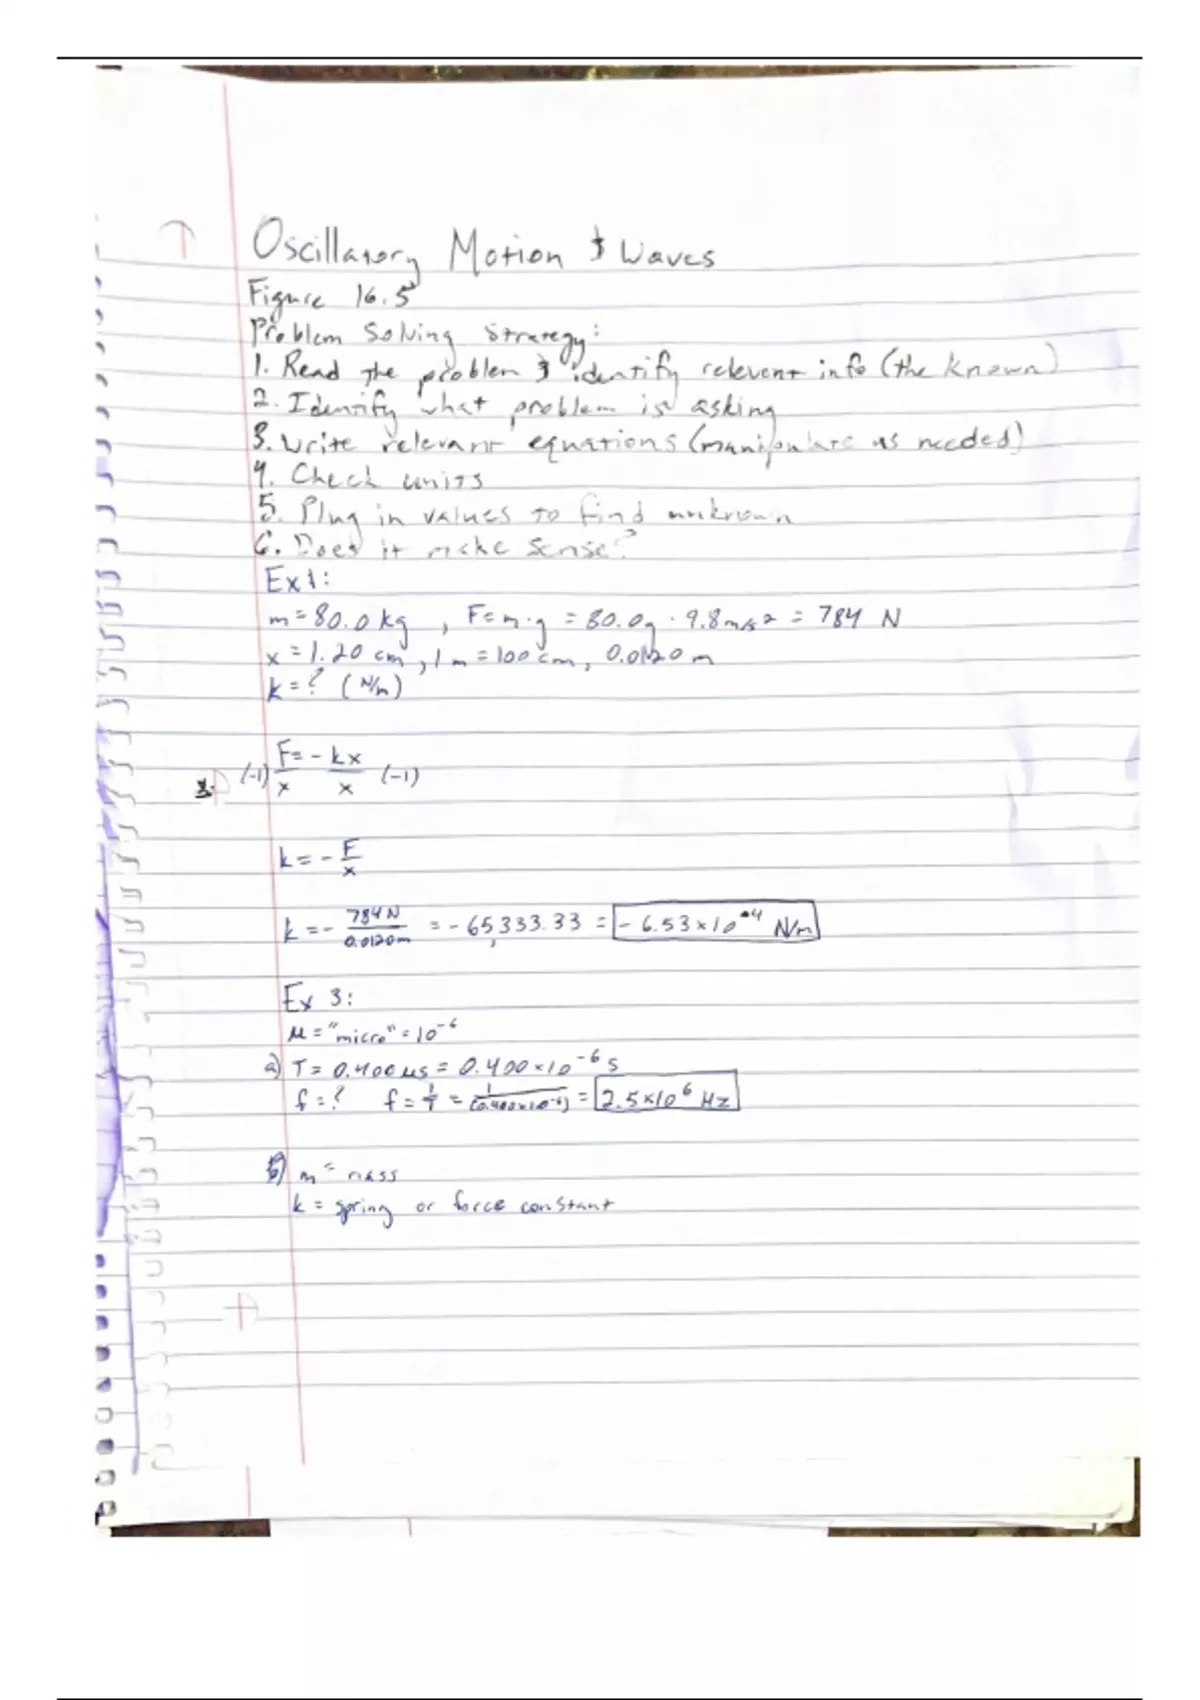 Oscillatory Motion & Waves
Figure 16.5
Problem Solving Strategy:
1. Read the problem & identify relevent info (the known)
2. Identify what problem is asking
3. Write relevant equations (manipulate as needed)
4. Check units
5. Plug in values to find unknown
6. Does it make sense?
Ex 1:
m = 80.0 kg , F = m·g = 80.0g · 9.8m/s2 = 784 N
x = 1.20 cm , 1 m = 100 cm, 0.0120 m
k = ? (N/m)
(-1) F/x = - kx/x (-1)
k = - F/x
k = - 784N/0.0120m = - 65,333.33 = - 6.53 x 10^4 N/m
Ex 3:
μ = "micro" = 10^-6
a) T = 0.400 μs = 0.400 x 10^-6 s
f = ? f = 1/T = 1/(0.400x10^-6) = 2.5 x 10^6 Hz
b) m = mass
k = spring or force constant